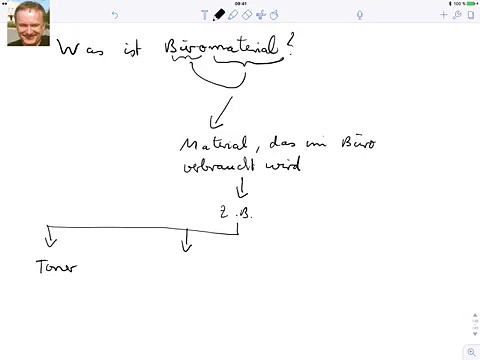 09:41
100 %
Was ist Büromaterial?
Material, das im Büro
verbraucht wird
z.B.
Toner